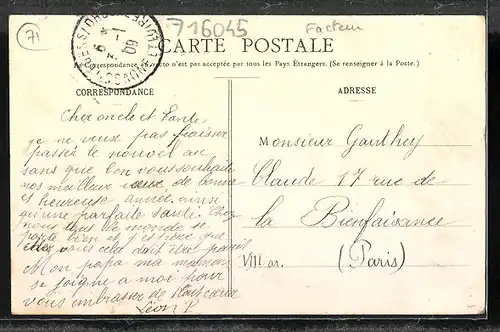 71
716045
Facteur
CARTE POSTALE
La Correspondance au recto n'est pas acceptée par tous les Pays Étrangers. (Se renseigner à la Poste.)
CORRESPONDANCE
ADRESSE
Cher oncle et Tante
je ne veux pas laisser
passer le nouvel an
sans que l'on vous souhaite
nos meilleur veux de bonne
et heureuse année ainsi
qu'une parfaite santé. Chez
nous tous le monde se
porte bien et j'espère que
chez vous cela doit être pareil
Mon papa ma maman
se joigne a moi pour
vous embrasser de tout cœur
Léon P
Monsieur Gauthey
Claude 17 rue de
la Bienfaisance
VIII ar. (Paris)